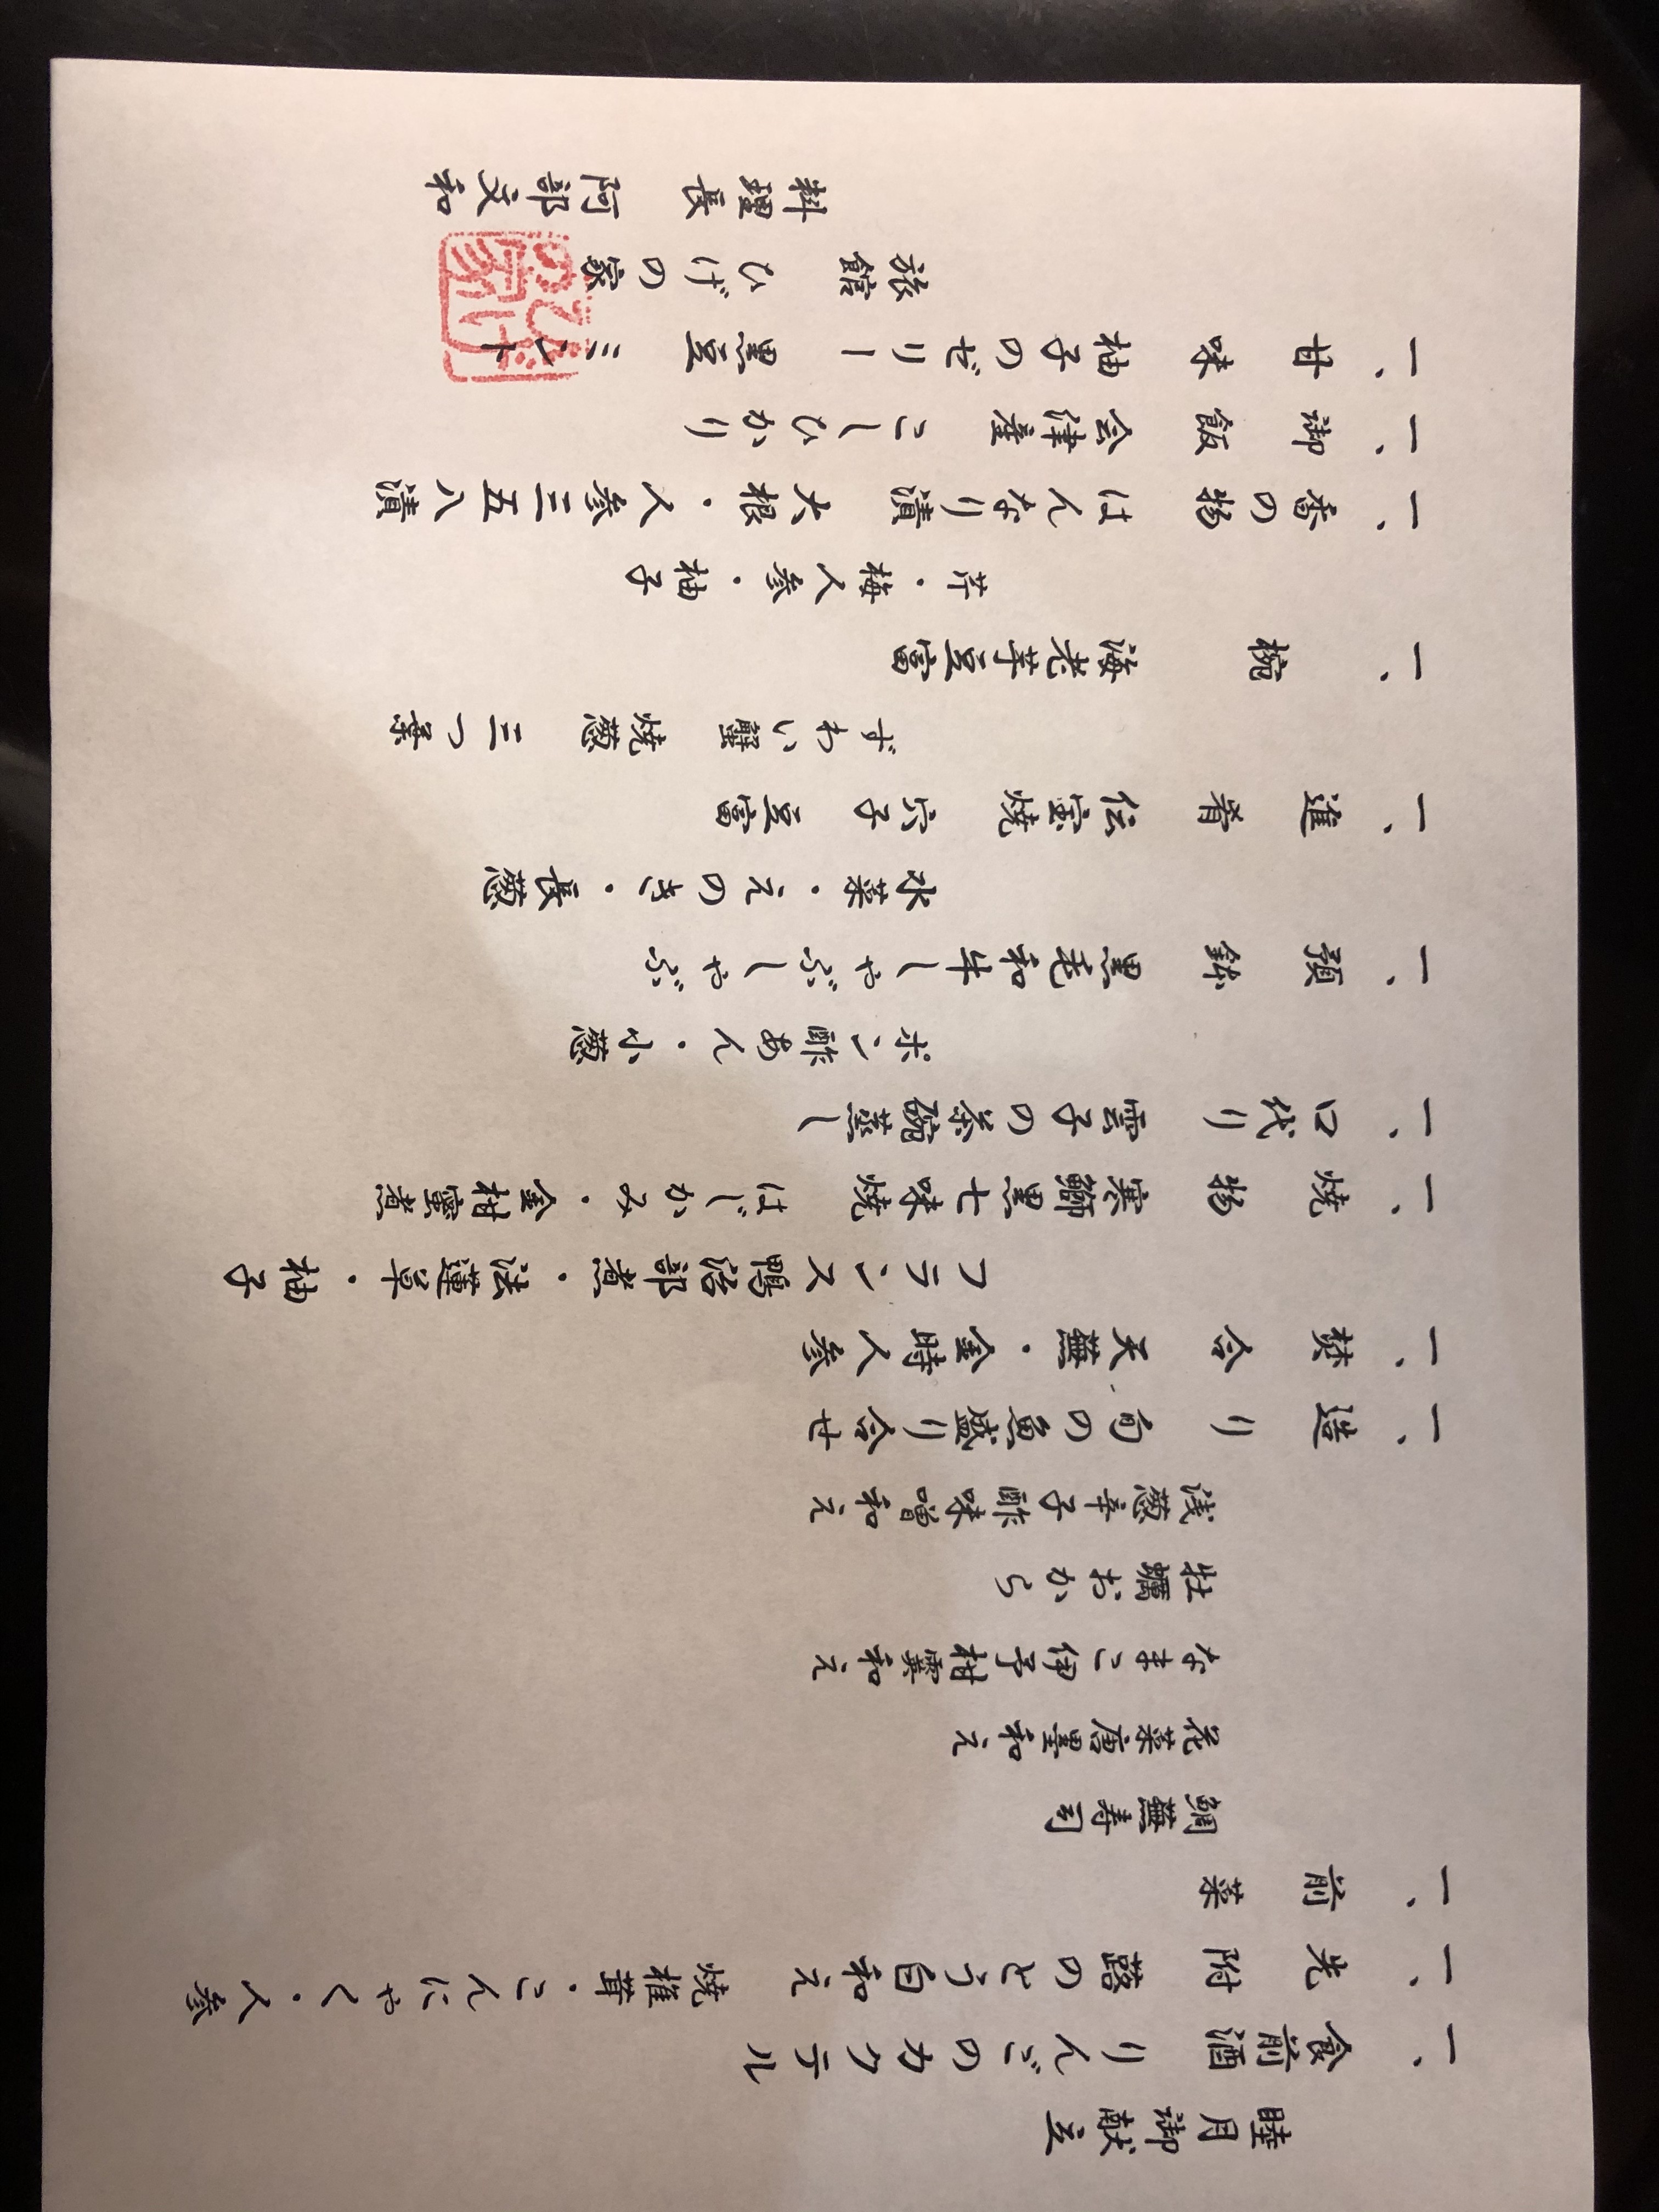 睦月御献立
一、食前酒 りんごのカクテル
一、先附 蕗のとう白和え 焼椎茸・こんにゃく・人参
一、前菜
鯛蕪寿司
花菜唐墨和え
なまこ伊予柑霙和え
牡蠣おから
浅葱辛子酢味噌和え
一、造り 旬の魚盛り合せ
一、焚合 天蕪・金時人参
フランス鴨治部煮・法蓮草・柚子
一、焼物 寒鰤黒七味焼 はじかみ・金柑蜜煮
一、口代り 雲子の茶碗蒸し
ポン酢あん・小葱
一、預鉢 黒毛和牛しゃぶしゃぶ
水菜・えのき・長葱
一、進肴 伝宝焼 穴子 豆富
ずわい蟹 焼葱 三つ葉
一、椀 海老芋豆富
芹・梅人参・柚子
一、香の物 はんなり漬 大根・人参三五八漬
一、御飯 会津産 こしひかり
一、甘味 柚子のゼリー 黒豆 ミント
旅館 ひげの家
料理長 阿部文和